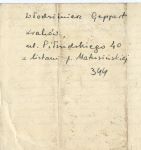 Włodzimierz Geppert
Kraków,
ul. Piłsudskiego 40
z listem p. Matusińskiej
344